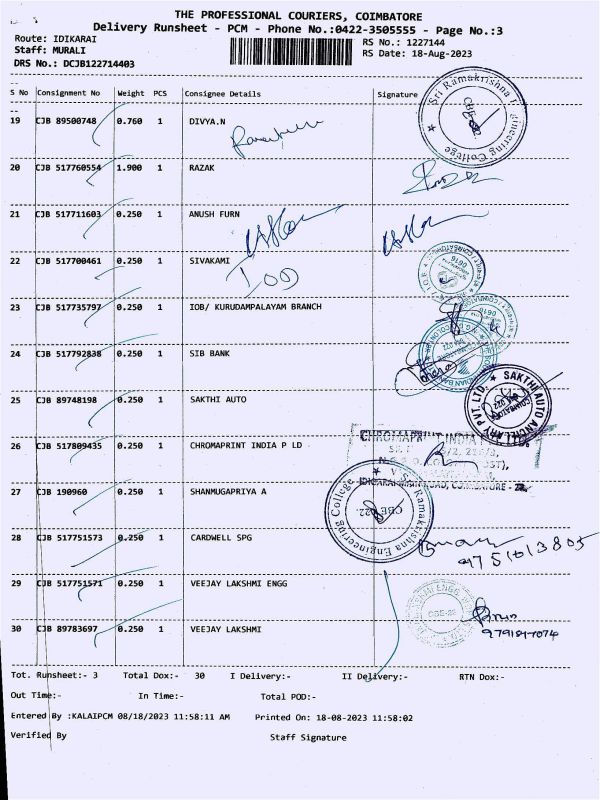 THE PROFESSIONAL COURIERS, COIMBATORE
Delivery Runsheet - PCM - Phone No.:0422-3505555 - Page No.:3
Route: IDIKARAI
RS No.: 1227144
Staff: MURALI
RS Date: 18-Aug-2023
DRS No.: DCJB122714403
S No Consignment No Weight PCS Consignee Details Signature
19 CJB 89500748 0.760 1 DIVYA.N
20 CJB 517760554 1.900 1 RAZAK
21 CJB 517711603 0.250 1 ANUSH FURN
22 CJB 517700461 0.250 1 SIVAKAMI
23 CJB 517735797 0.250 1 IOB/ KURUDAMPALAYAM BRANCH
24 CJB 517792838 0.250 1 SIB BANK
25 CJB 89748198 0.250 1 SAKTHI AUTO
26 CJB 517809435 0.250 1 CHROMAPRINT INDIA P LD
27 CJB 190960 0.250 1 SHANMUGAPRIYA A
28 CJB 517751573 0.250 1 CARDWELL SPG
29 CJB 517751571 0.250 1 VEEJAY LAKSHMI ENGG
30 CJB 89783697 0.250 1 VEEJAY LAKSHMI
Sri Ramakrishna Engineering College
SAKTHI AUTO ANCILLARY PVT. LTD.
CHROMAPRINT INDIA
Ramakrishna Engineering College
CBE-022
9751013805
Tot. Runsheet:- 3 Total Dox:- 30 I Delivery:- II Delivery:- RTN Dox:-
Out Time:- In Time:- Total POD:-
Entered By :KALAIPCM 08/18/2023 11:58:11 AM Printed On: 18-08-2023 11:58:02
Verified By Staff Signature